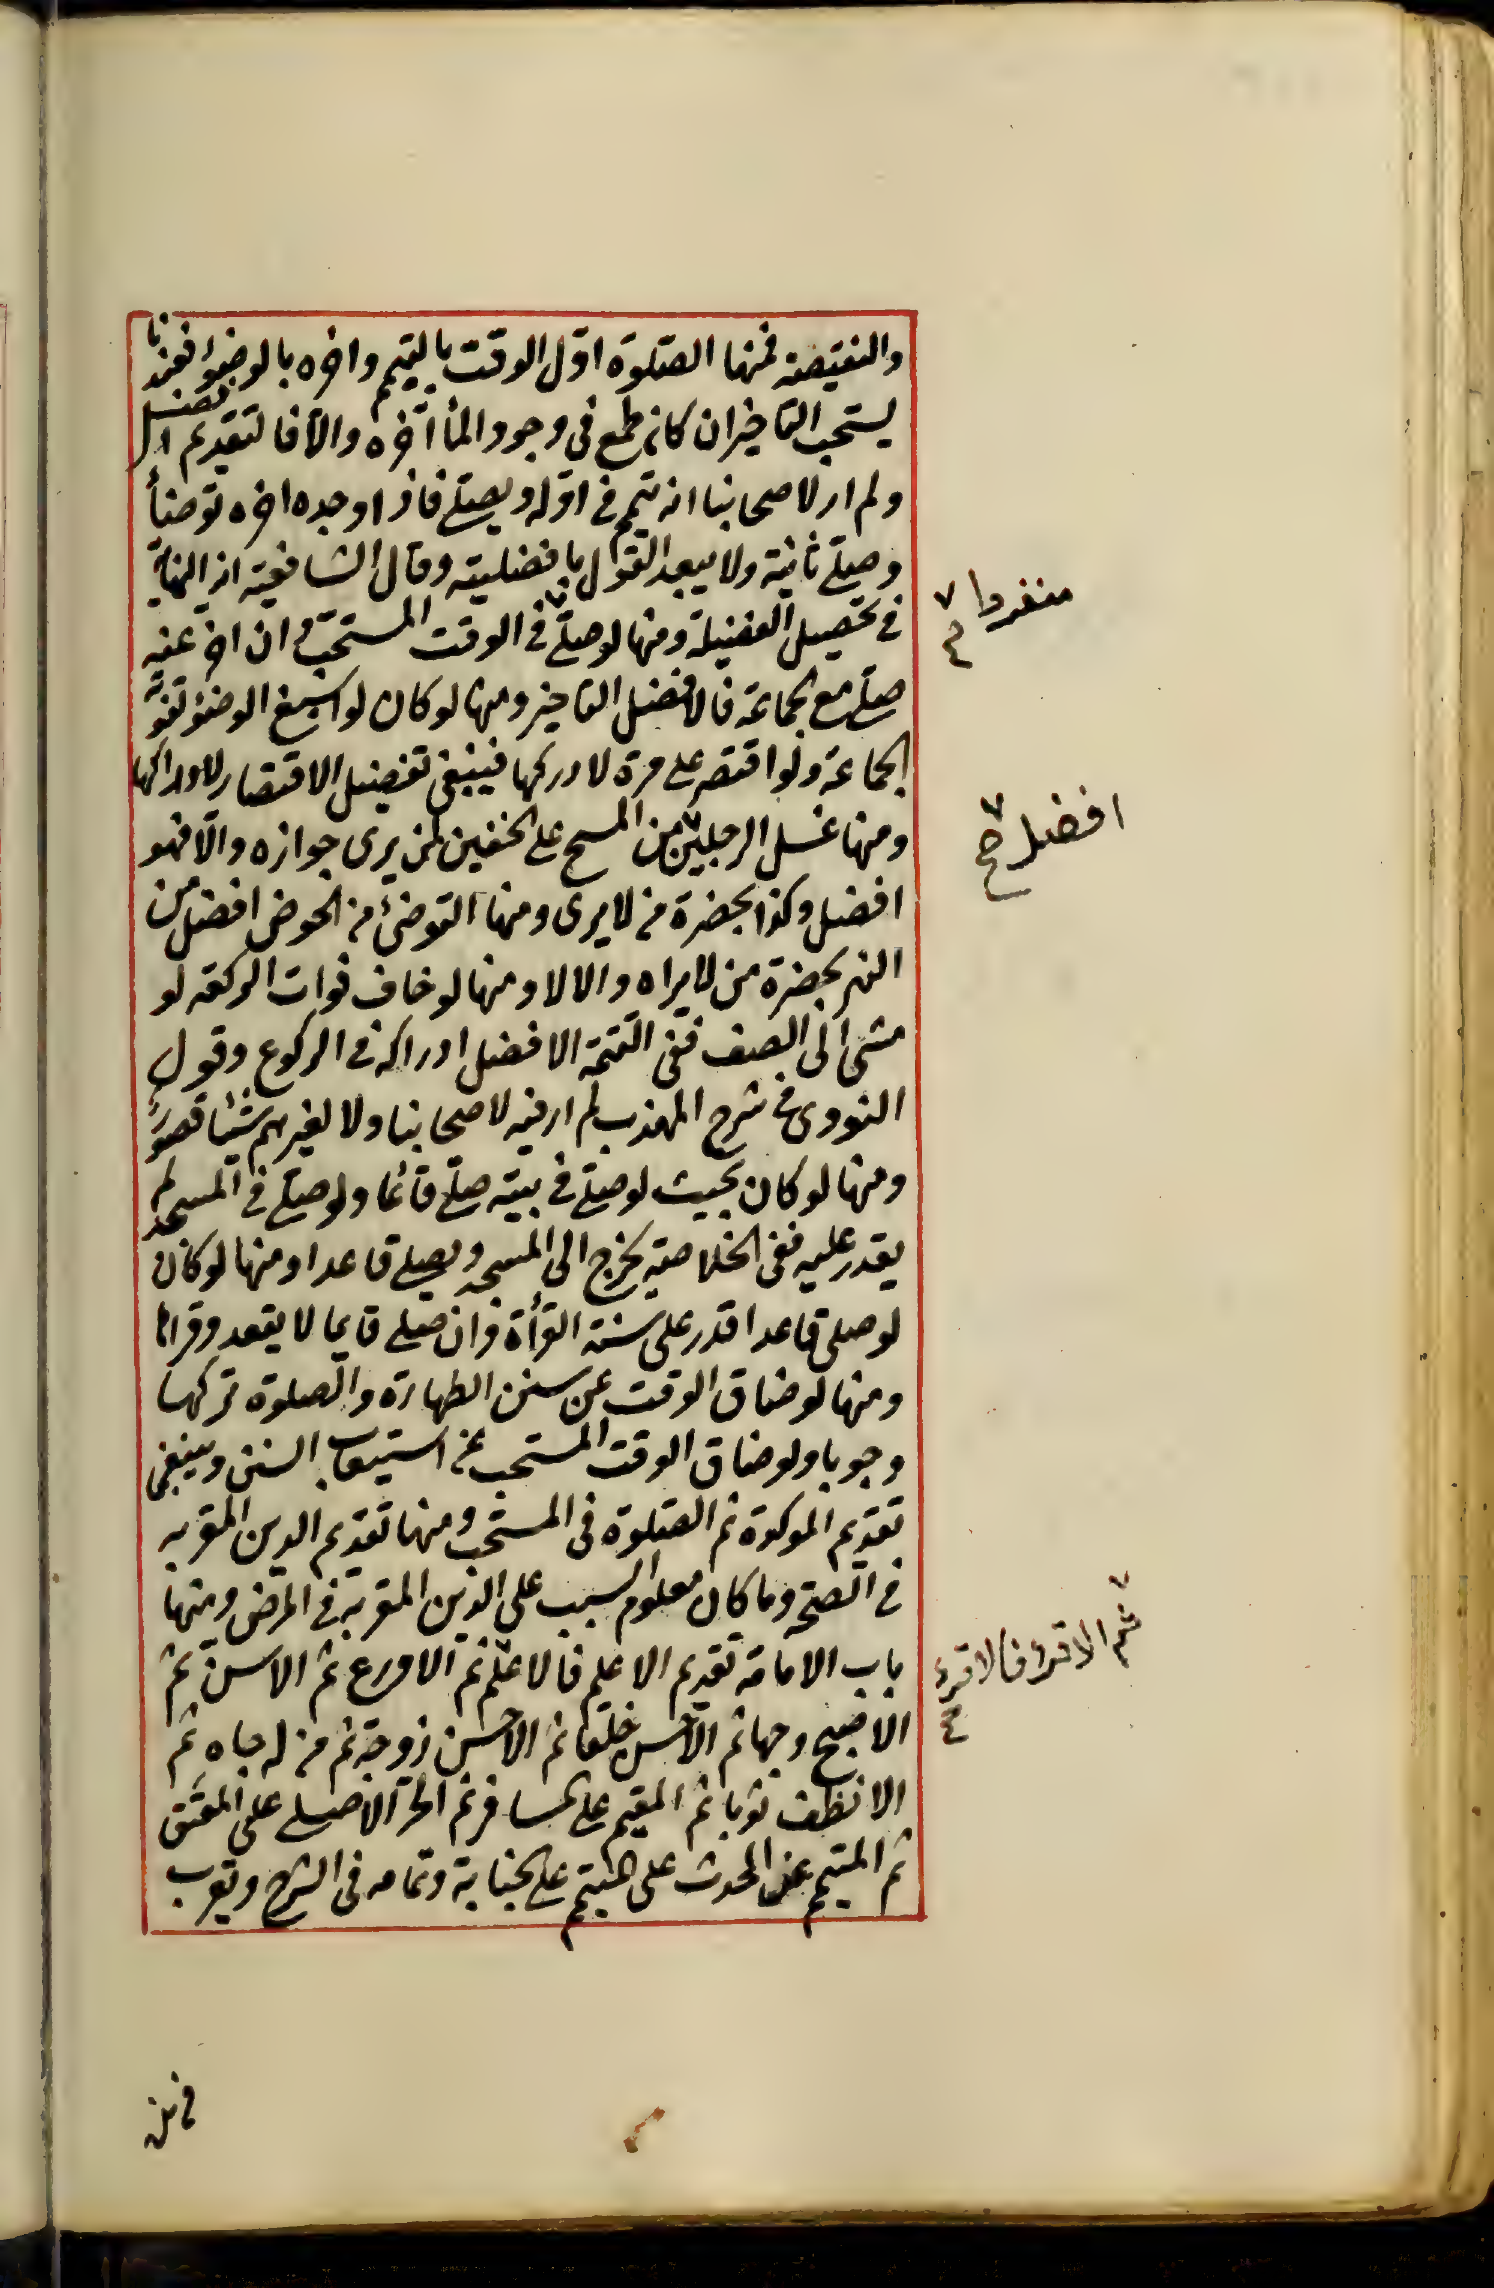 والنقيصة فمنها الصلوة اول الوقت بالتيمم واخره بالوضوء فعندنا
يستحب التاخير ان كان طمع في وجود الماء اخره والا فالتقديم افضل
ولم ار لاصحابنا انه تيمم في اوله ويصلي فاذا وجده اخره توضأ
وصلي ثانية ولا يبعد القول بافضليته وقال الشافعية انه النهاية
في تحصيل الفضيلة ومنها لو صلي في الوقت المستحب وان اخر عنه
منفردا
صلي مع الجماعة فالافضل التاخير ومنها لو كان لو اسبغ الوضوء تفوته
الجماعة ولو اقتصر على مرة لادركها فينبغي تفضيل الاقتصار لادراكها
افضل صح
ومنها غسل الرجلين من المسح على الخفين لمن يرى جوازه والا فهو
افضل وكذا بحضرة من لا يرى ومنها التوضئ من الحوض افضل من
النهر بحضرة من لا يراه والا لا ومنها لو خاف فوات الركعة لو
مشى الى الصف ففي التتمة الافضل ادراكه في الركوع وقول
النووي في شرح المهذب لم ار فيه لاصحابنا ولا لغيرهم شيئا قصور
ومنها لو كان بحيث لو صلي في بيته صلي قائما ولو صلي في المسجد لم
يقدر عليه ففي الخلاصة يخرج الى المسجد ويصلي قاعدا ومنها لو كان
لو صلى قاعدا قدر على سنة القرأة وان صلي قايما لا يقعد وقراها
ومنها لو ضاق الوقت عن سنن الطهارة والصلوة تركها
وجوبا ولو ضاق الوقت المستحب عن استيعاب السنن وينبغي
تقديم الموكدة ثم الصلوة في المستحب ومنها تقديم الدين المقر به
في الصحة وما كان معلوم السبب على الدين المقر به في المرض ومنها
باب الامامة تقديم الاعلم فالاعلم ثم الاورع ثم الاسن ثم
ثم الاقرء فالاقرء
الاصبح وجها ثم الاحسن خلقا ثم الاحسن زوجة ثم من له جاه ثم
الانظف ثوبا ثم المقيم على المسافر ثم الحر الاصلي على المعتق
ثم المتيمم عن المحدث على المتيمم على الجنابة وتمامه في الشرح ويقرب